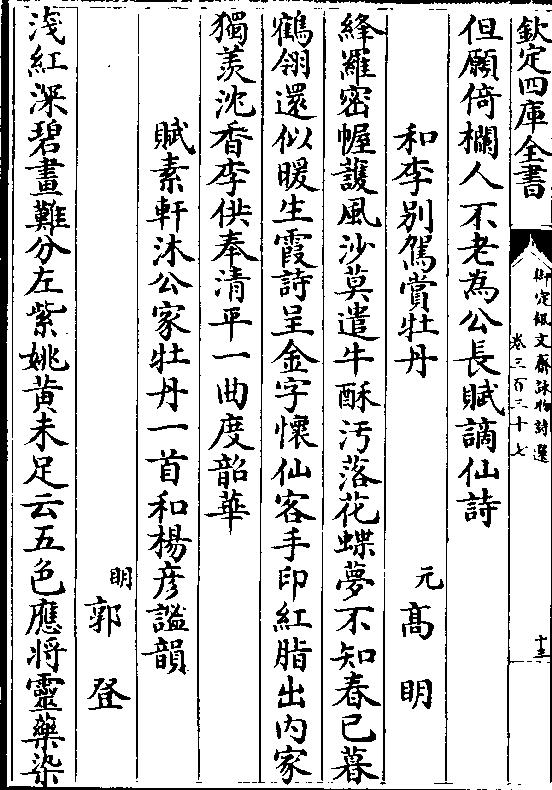 欽定四庫全書
御定佩文齋詠物詩選
卷三百三十七
十三
但願倚欄人不老為公長賦謫仙詩
和李别駕賞牡丹
元髙明
絳羅密幄䕶風沙莫遣牛酥汚落花蝶夢不知春已暮
鶴翎還似暖生霞詩呈金字懷仙客手印紅脂出内家
獨羡沈香李供奉清平一曲度韶華
賦素軒沐公家牡丹一首和楊彦謐韻
明郭登
淺紅深碧畫難分左紫姚黄未足云五色應將靈藥染